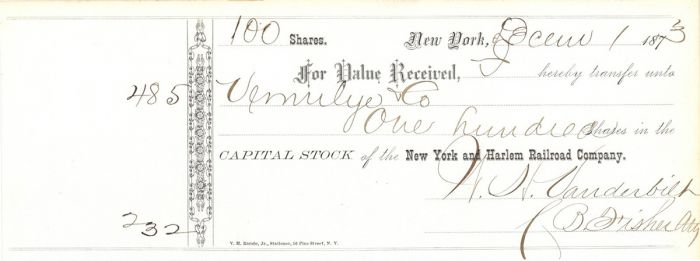 100 Shares. New York, Decem 1 1873
For Value Received, I hereby transfer unto
485 Vermilye & Co
One hundred Shares in the
CAPITAL STOCK of the New York and Harlem Railroad Company.
W. H. Vanderbilt
232 B. Fisher Atty
V. H. Rands, Jr., Stationer, 16 Pine Street, N. Y.